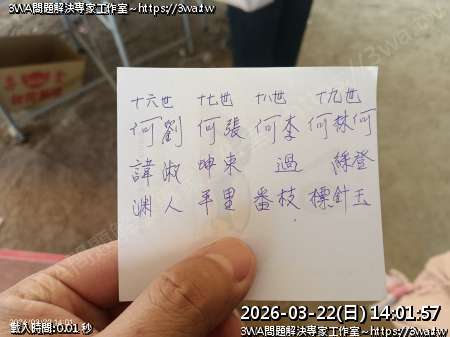 3WA問題解決專家工作室~https://3wa.tw
十六世 十七世 十八世 十九世
何劉 何張 何李 何林何
諱淑 坤東 過 綠登
淵人 平里 番枝 標針玉
2026-03-22(日) 14:01:57
載入時間:0.01 秒
3WA問題解決專家工作室~https://3wa.tw